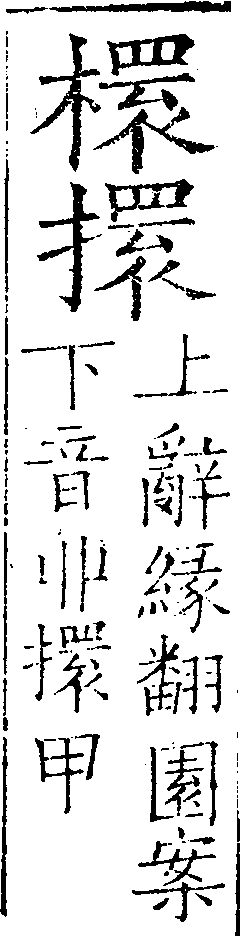 檈擐
上辭緣翻圜案
下音丱擐甲